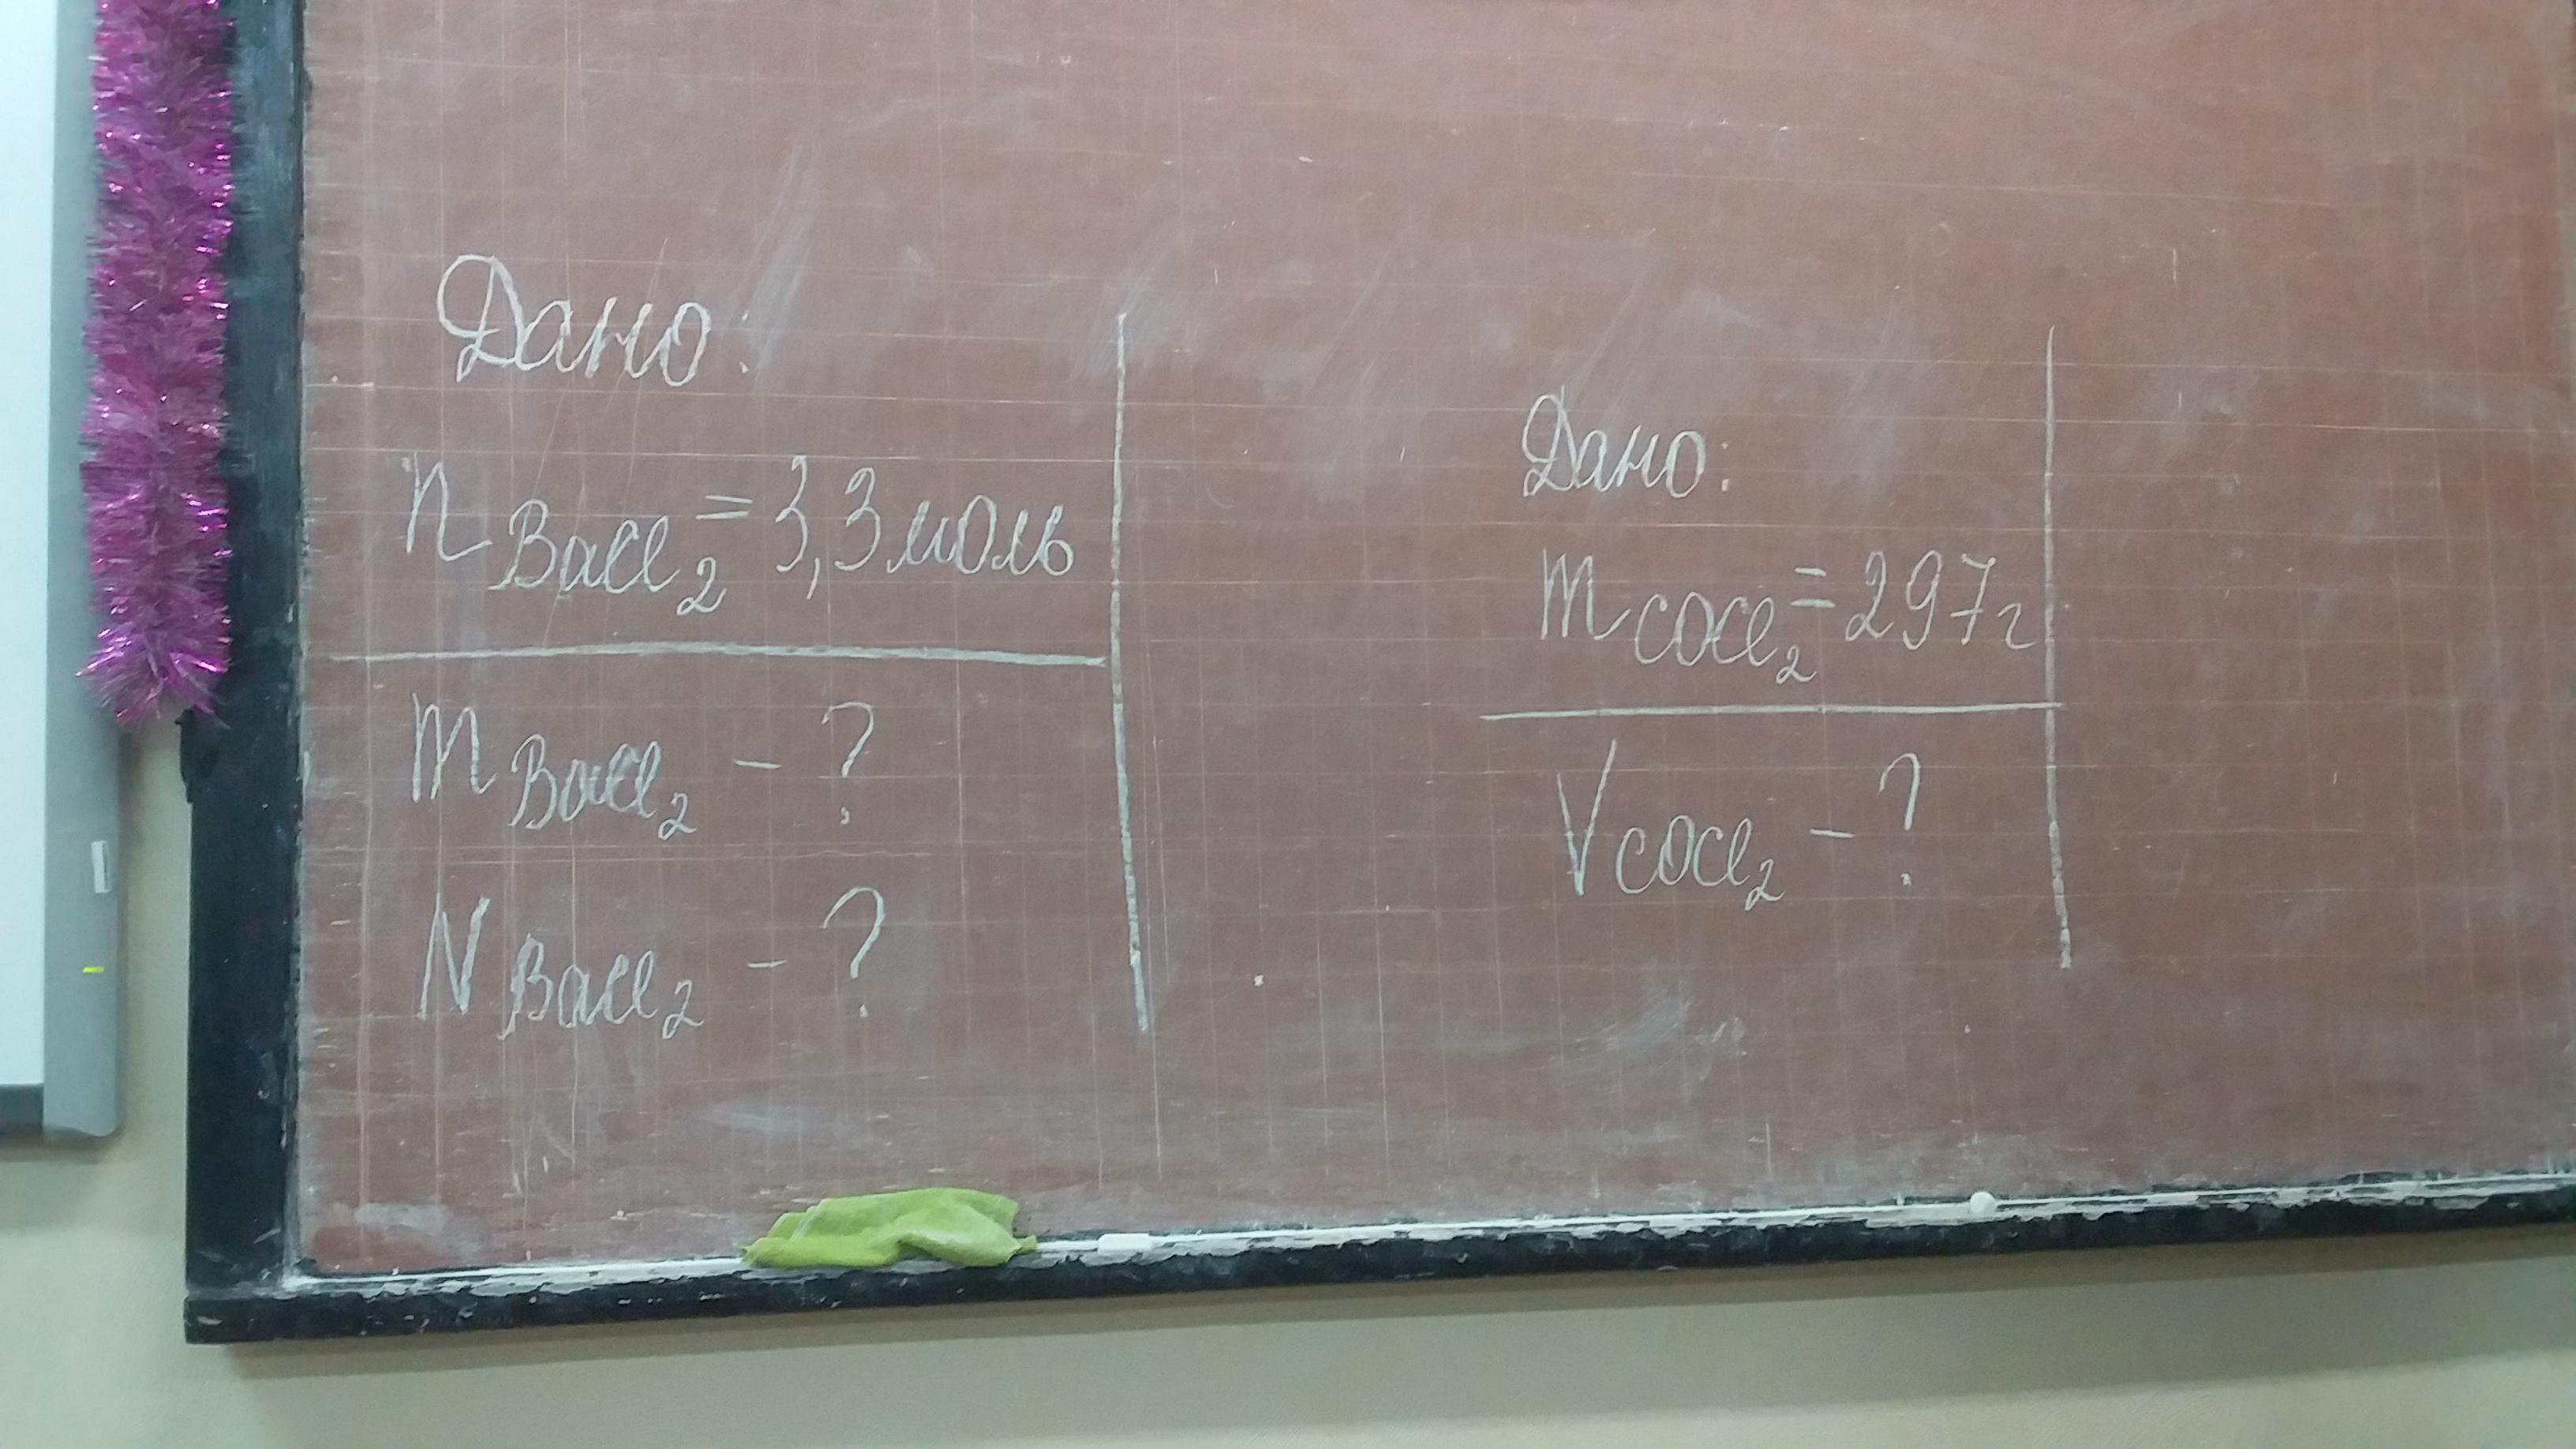 Дано:
n BaCl₂ = 3,3 моль
m BaCl₂ - ?
N BaCl₂ - ?
Дано:
m COCl₂ = 297 г
V COCl₂ - ?